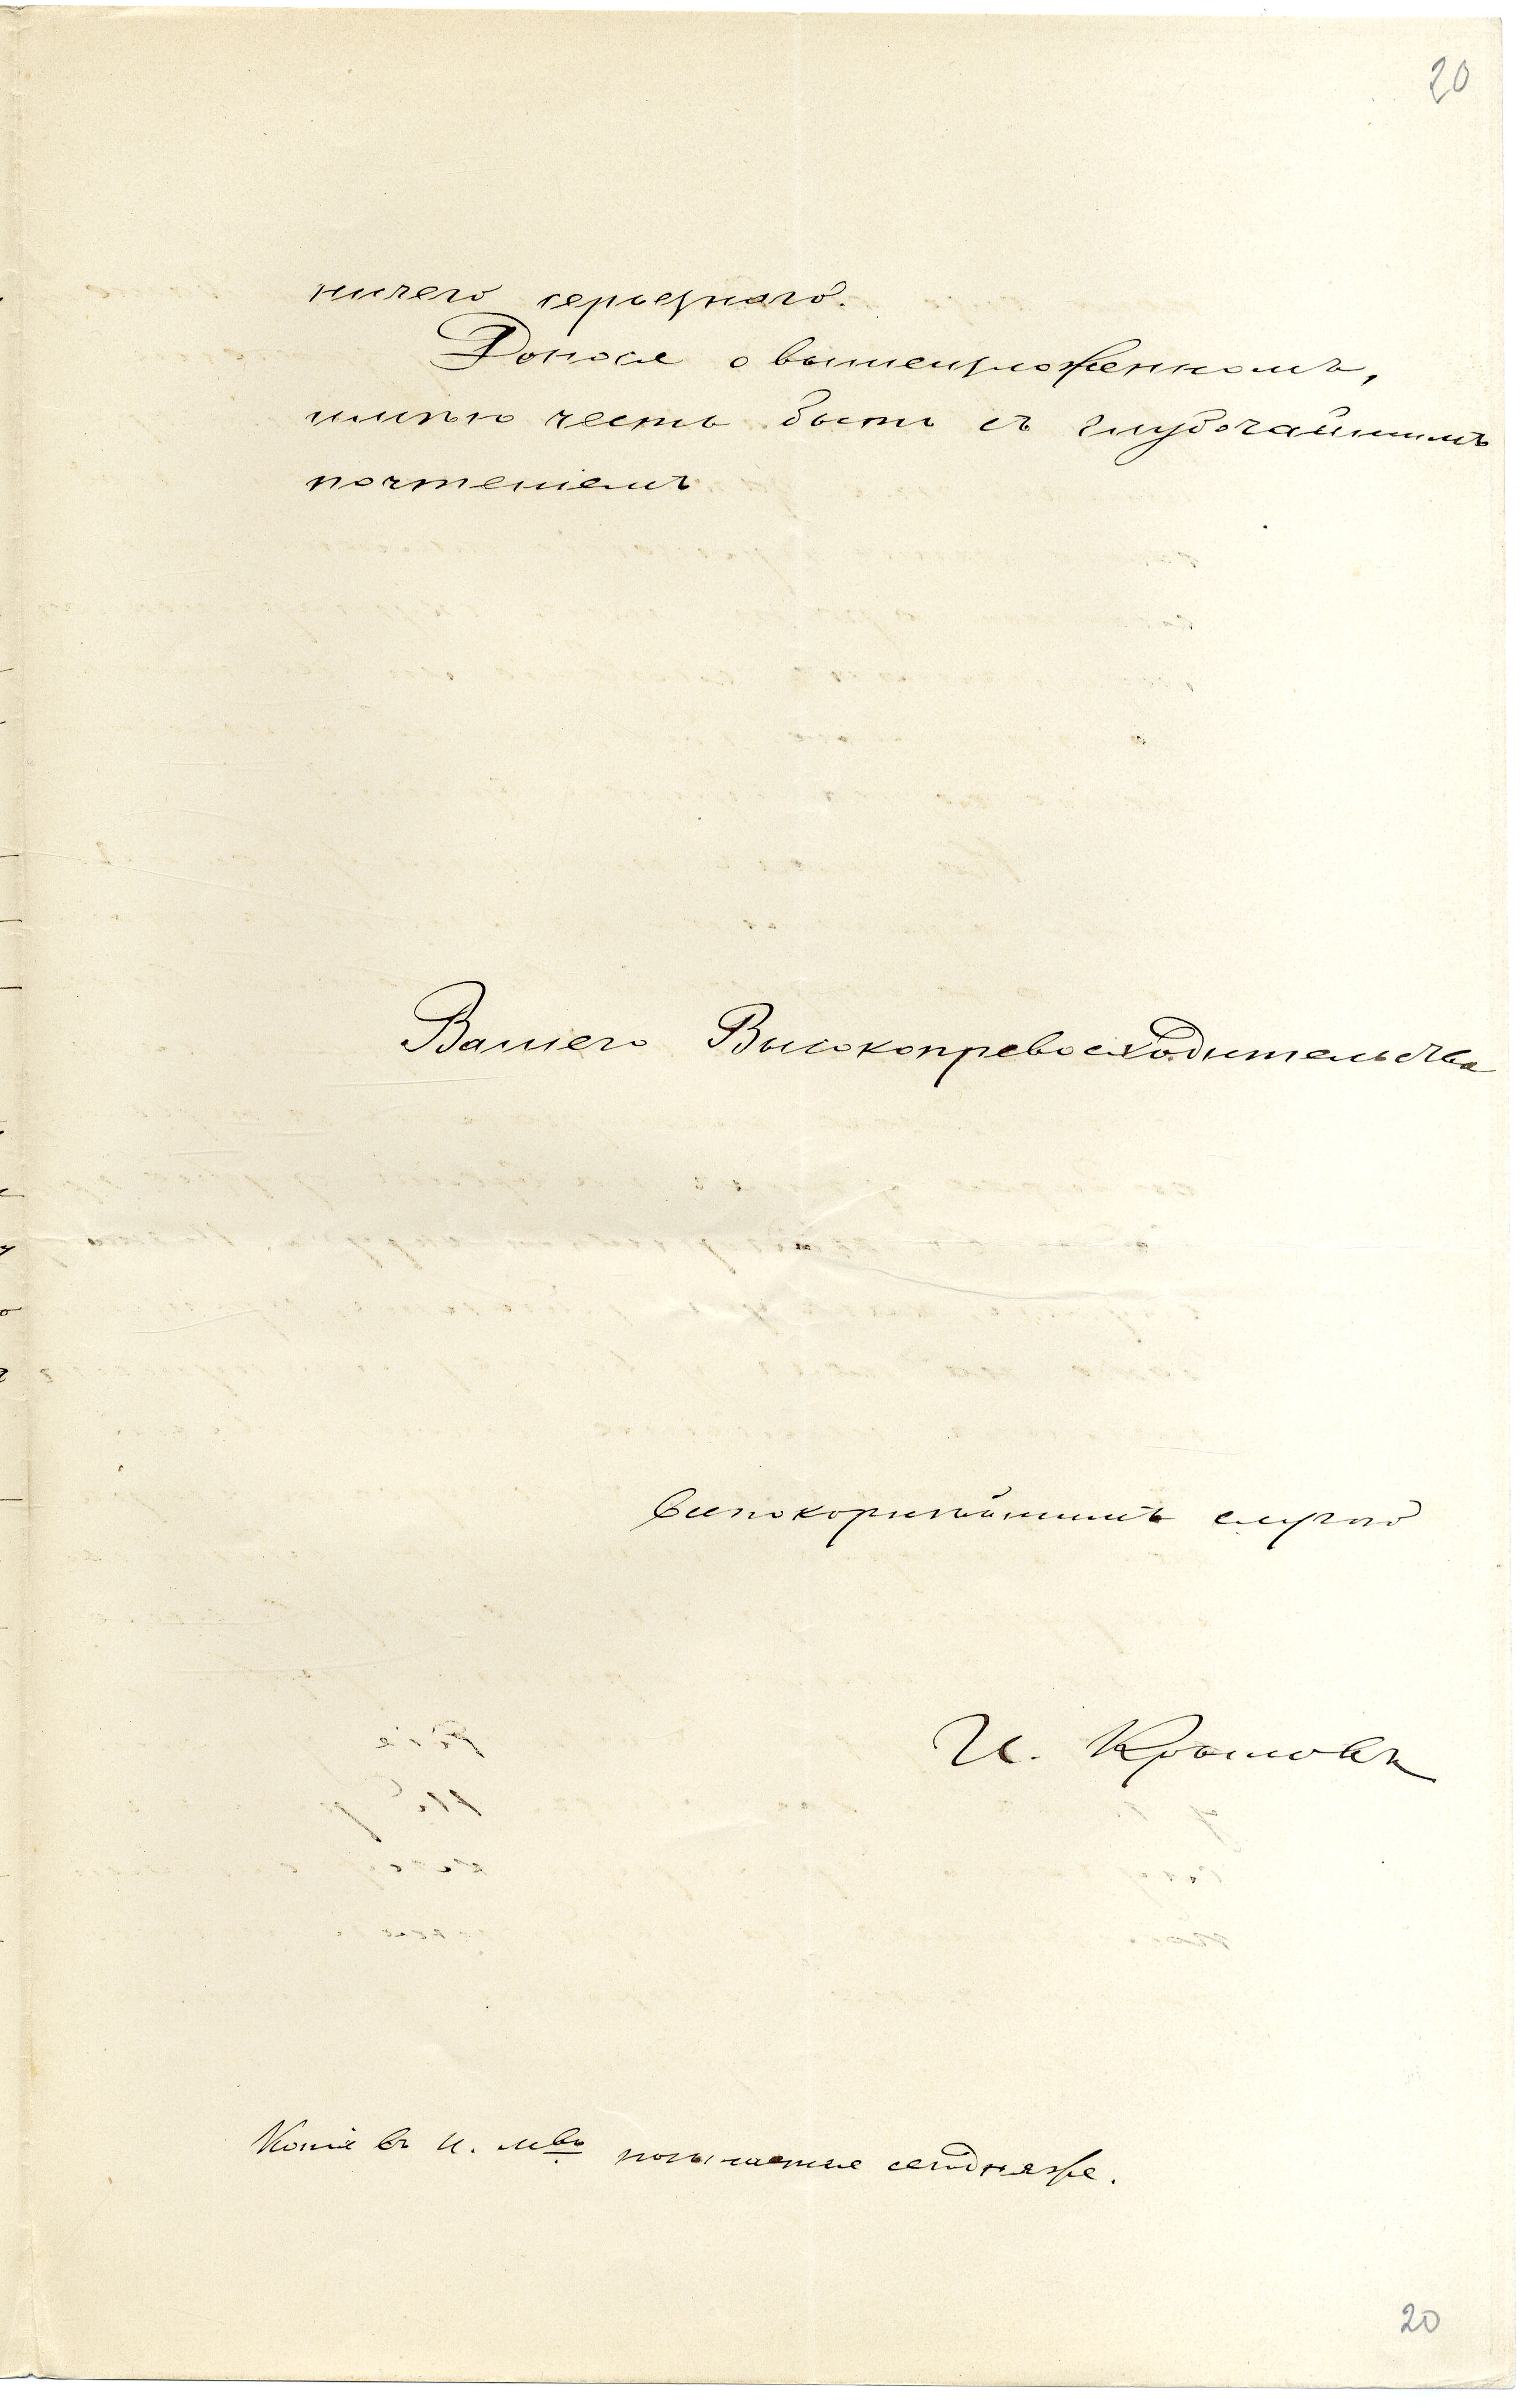 20
ничего серьезнаго.
Донося о вышеизложенномъ,
имѣю честь быть съ глубочайшимъ
почтеніемъ
Вашего Высокопревосходительства
Всепокорнѣйшимъ слугою
И.
Копія въ И. м-во посылается сегодня же.
20